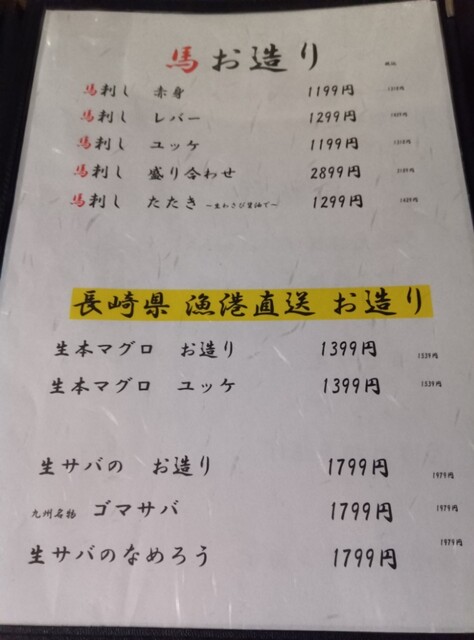 馬お造り 税込
馬刺し 赤身 1199円 1319円
馬刺し レバー 1299円 1429円
馬刺し ユッケ 1199円 1319円
馬刺し 盛り合わせ 2899円 3189円
馬刺し たたき ～生わさび醤油で～ 1299円 1429円
長崎県 漁港直送 お造り
生本マグロ お造り 1399円 1539円
生本マグロ ユッケ 1399円 1539円
生サバの お造り 1799円 1979円
九州名物 ゴマサバ 1799円 1979円
生サバのなめろう 1799円 1979円